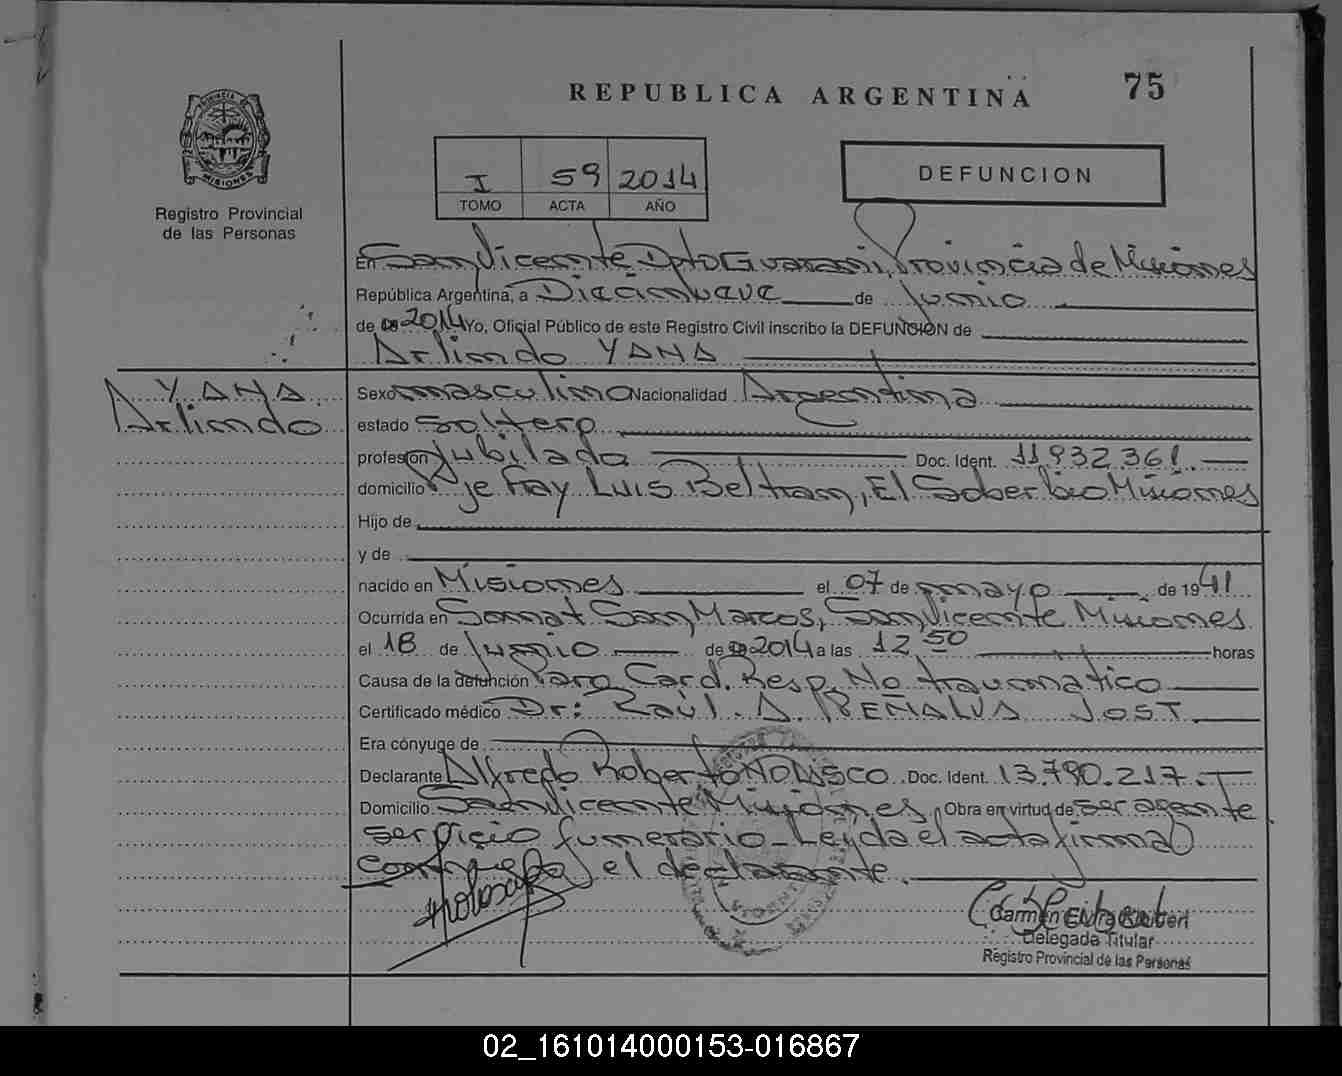 75
REPUBLICA ARGENTINA
PROVINCIA DE
MISIONES
Registro Provincial
de las Personas
I 59 2014
TOMO ACTA AÑO
DEFUNCION
En San Vicente Dpto Guarani, Provincia de Misiones
República Argentina, a Diecinueve de junio
de 2014 Yo, Oficial Público de este Registro Civil inscribo la DEFUNCIÓN de
Arlindo YANA
YANA
Arlindo
Sexo masculino Nacionalidad Argentina
estado soltero
profesión jubilado Doc. Ident. 11932361.
domicilio Pje Fray Luis Beltran, El Soberbio Misiones
Hijo de
y de
nacido en Misiones el 07 de mayo de 1941
Ocurrida en Sanat San Marcos, San Vicente Misiones
el 18 de junio de 2014 a las 12,50 horas
Causa de la defunción Paro Card. Resp. No traumatico
Certificado médico Dr: Raúl. A. JOST.
Era cónyuge de
Declarante Alfredo Roberto NOLASCO Doc. Ident. 13.790.217.
Domicilio San Vicente Misiones Obra en virtud de ser agente
servicio funerario - Leyda el acta firma
conmigo el declarante.
Carmen Elvira
Delegada Titular
Registro Provincial de las Personas
02_161014000153-016867